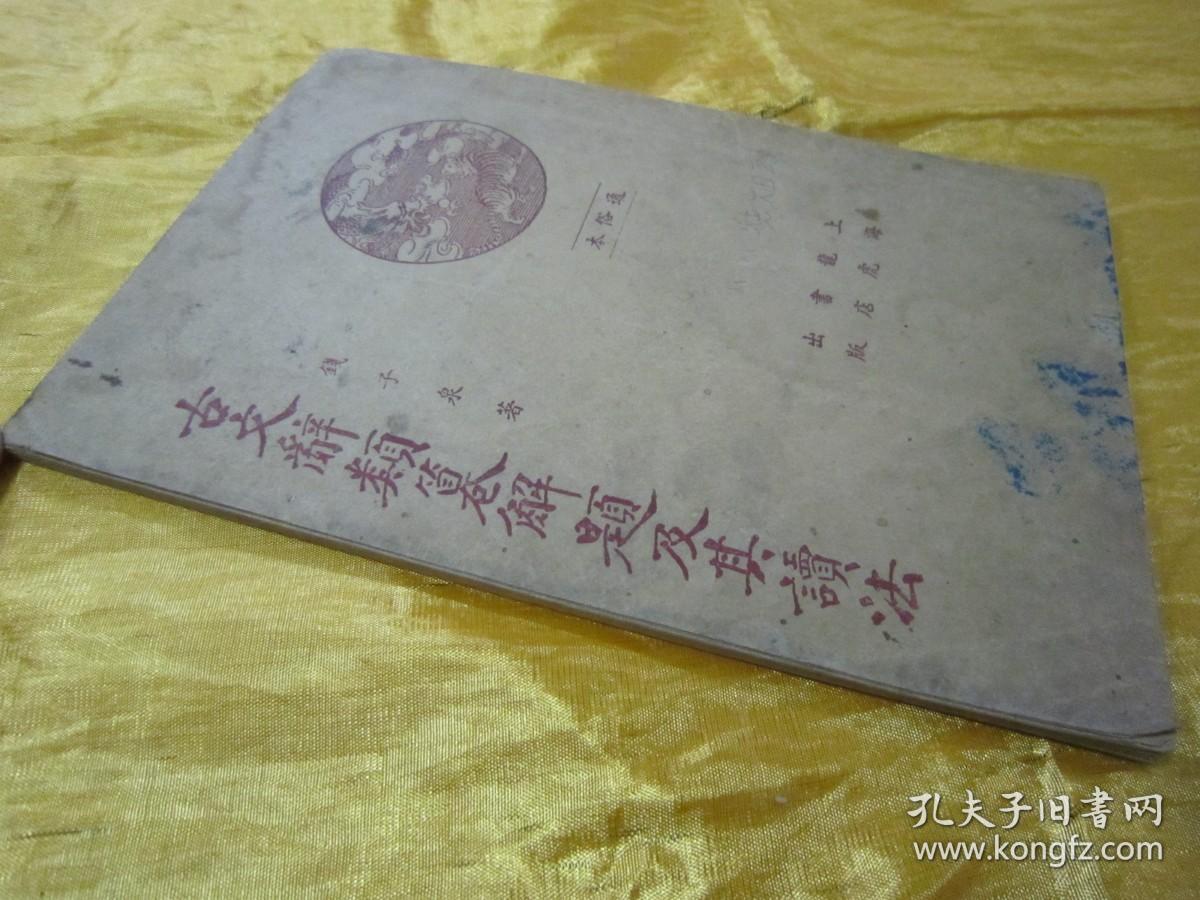 通俗本
上海
龍虎
書店
出版
錢子泉著
古文辭類纂解題及其讀法
孔夫子旧书网
www.kongfz.com